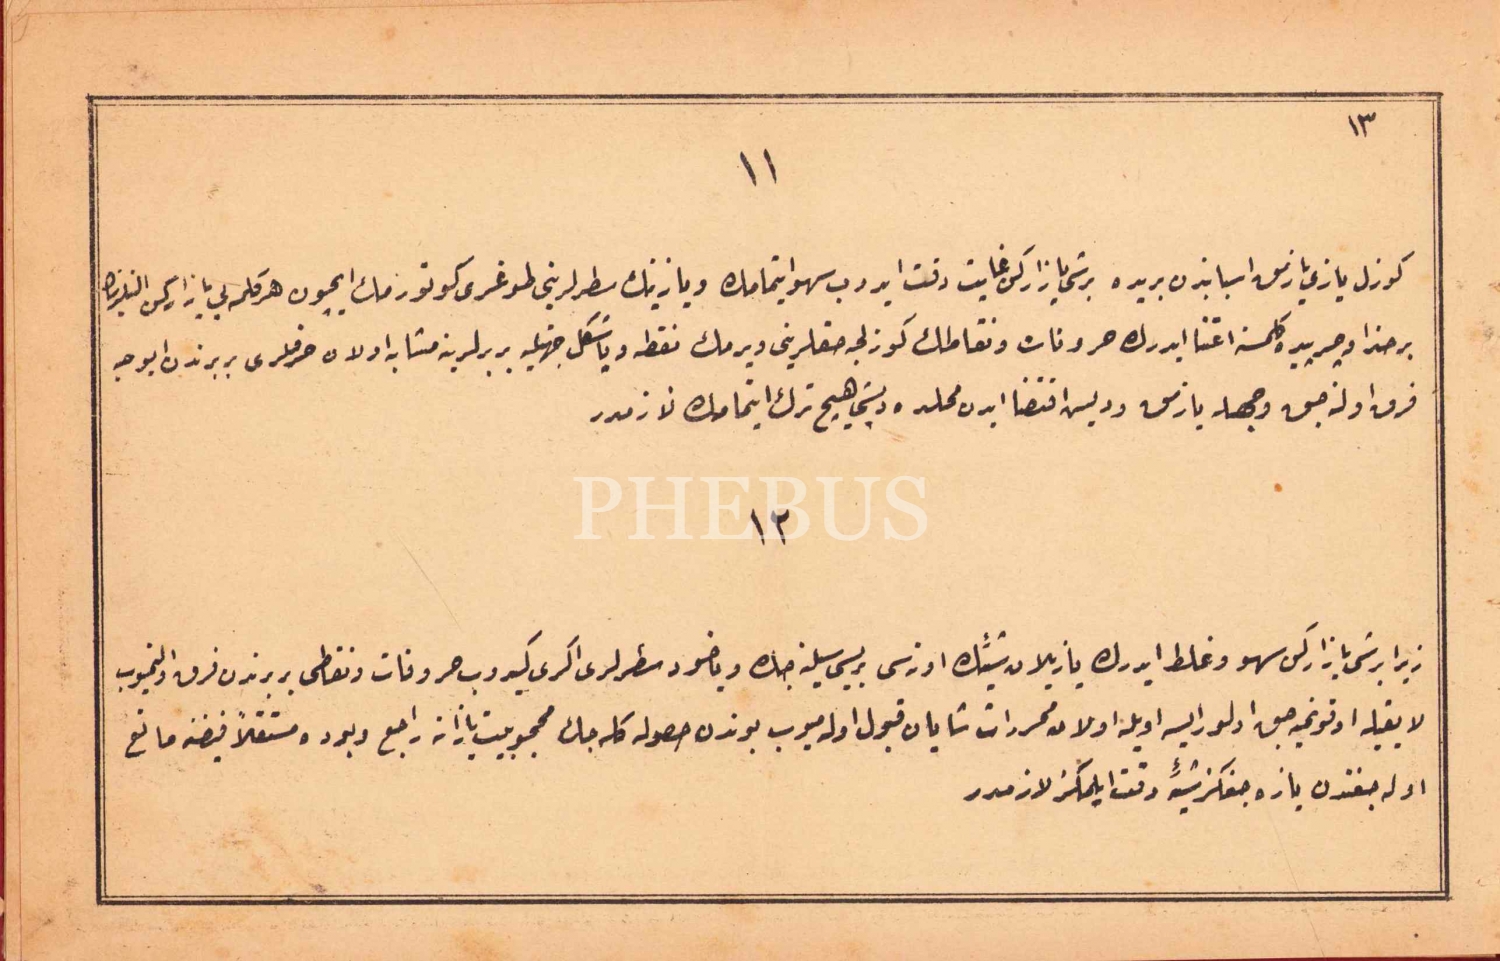 ١٣
١١
كوزل يازى يازمق اسبابندن بريده برشى يازاركن غايت دقت ايدوب سهو ايتمامك ويازينك سطرلرينى طوغرى كوتورمك ايچون هر كلمه يى يازاركن
كلمسنه اعتنا ايدرك حروفات ونقاطك كوزلجه حقلرينى ويرمك نقطه ويا شكل جهتيله بربرلرينه مشابه اولان حرفلرى بربرندن ايوجه
فرق اولنه جق وجهله يازمق وديس اقتضا ايدن محلده ديشى هيچ ترك ايتمامك لازمدر
PHEBUS
١٢
زيرا برشى يازاركن سهو وغلط ايدرك يازيلان شيئك اوزسى بريسى سيلنه جك وياخود سطرلرى اكرى كيدوب حروفات ونقطى بربرندن فرق اولنميوب
لايقيله اوقونميه جق اولور ايسه اويله اولان محررات شايان قبول اولميوب بوندن حصوله كله جك محجوبيت يازانه راجع وبوده مستقلاً فيضنه مانع
اوله جغندن يازه جغكز شيئه دقت ايلمكز لازمدر